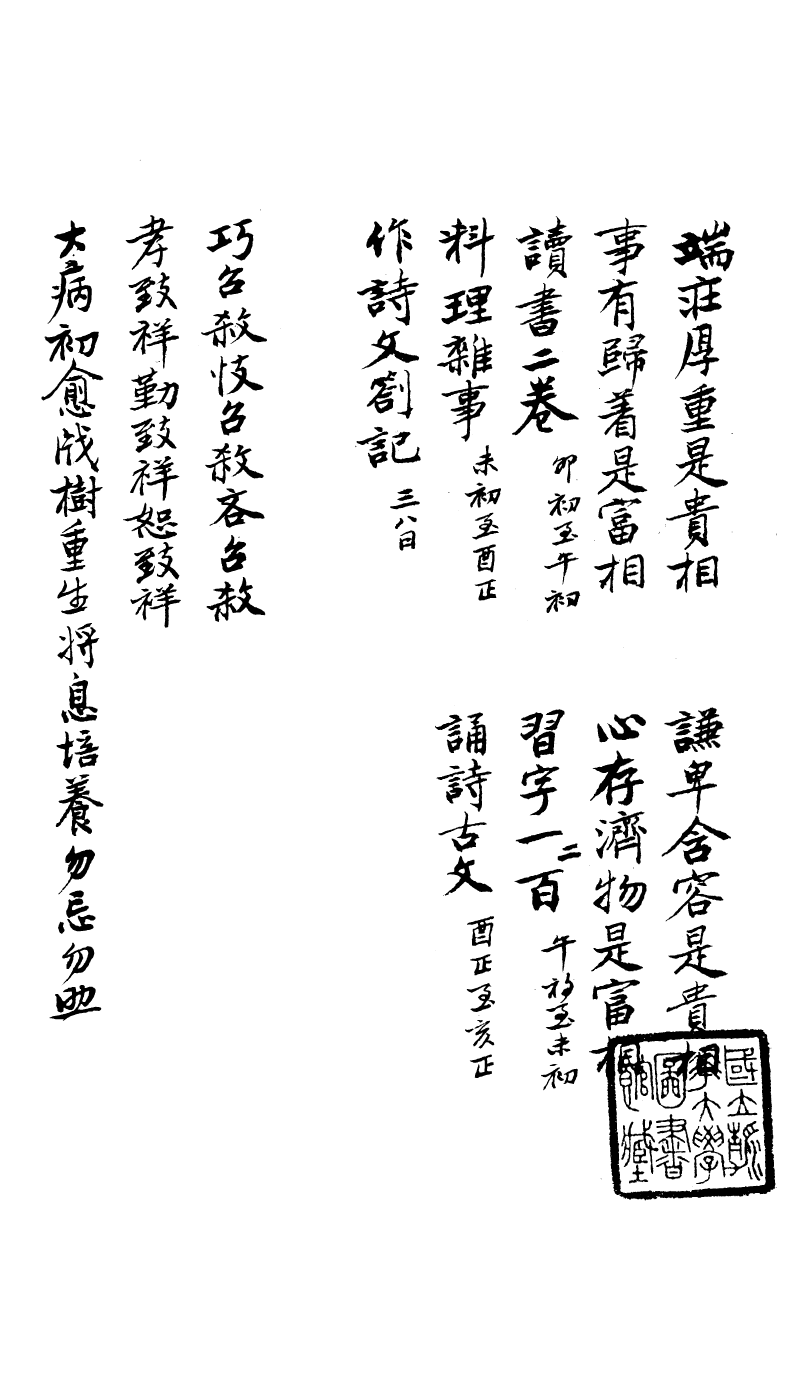 端莊厚重是貴相
謙卑含容是貴相
事有歸着是富相
心存濟物是富相
讀書二卷 卯初至午初
習字一二百 午初至未初
料理雜事 未初至酉正
誦詩古文 酉正至亥正
作詩文劄記 三八日
巧召殺忮召殺吝召殺
孝致祥勤致祥恕致祥
大病初愈戕樹重生將息培養勿忘勿助
國立清
華大學
圖書
館藏